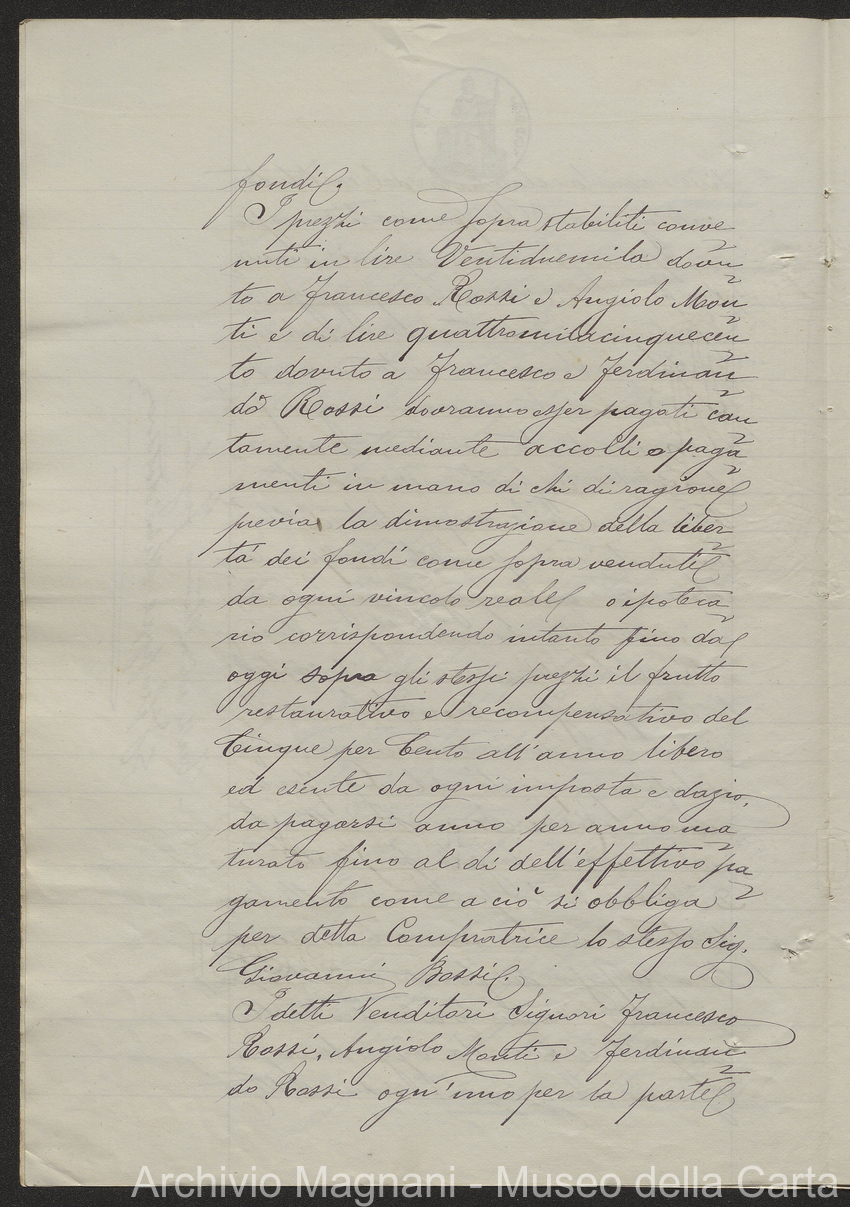 fondi.
I prezzi come sopra stabiliti conve
nuti in lire Ventiduemila dovu
to a Francesco Rossi e Angiolo Mon
ti e di lire quattromilacinquecen
to dovuto a Francesco e Ferdinan
do Rossi dovranno esser pagati con
tamente mediante accolli o paga
menti in mano di chi di ragione
previa la dimostrazione della liber
tá dei fondi come sopra venduti
da ogni vincolo reale o ipoteca
rio corrispondendo intanto fino da
oggi sopra gli stessi prezzi il frutto
restaurativo e recompensativo del
Cinque per Cento all'anno libero
ed esente da ogni imposta e dazio,
da pagarsi anno per anno ma
turato fino al di dell'effettivo pa
gamento come a ciò si obbliga
per detta Compratrice lo stesso Sig.
Giovanni Bossi.
I detti Venditori Signori Francesco
Rossi, Angiolo Monti e Ferdinan
do Rossi ogn'uno per la parte
Archivio Magnani - Museo della Carta